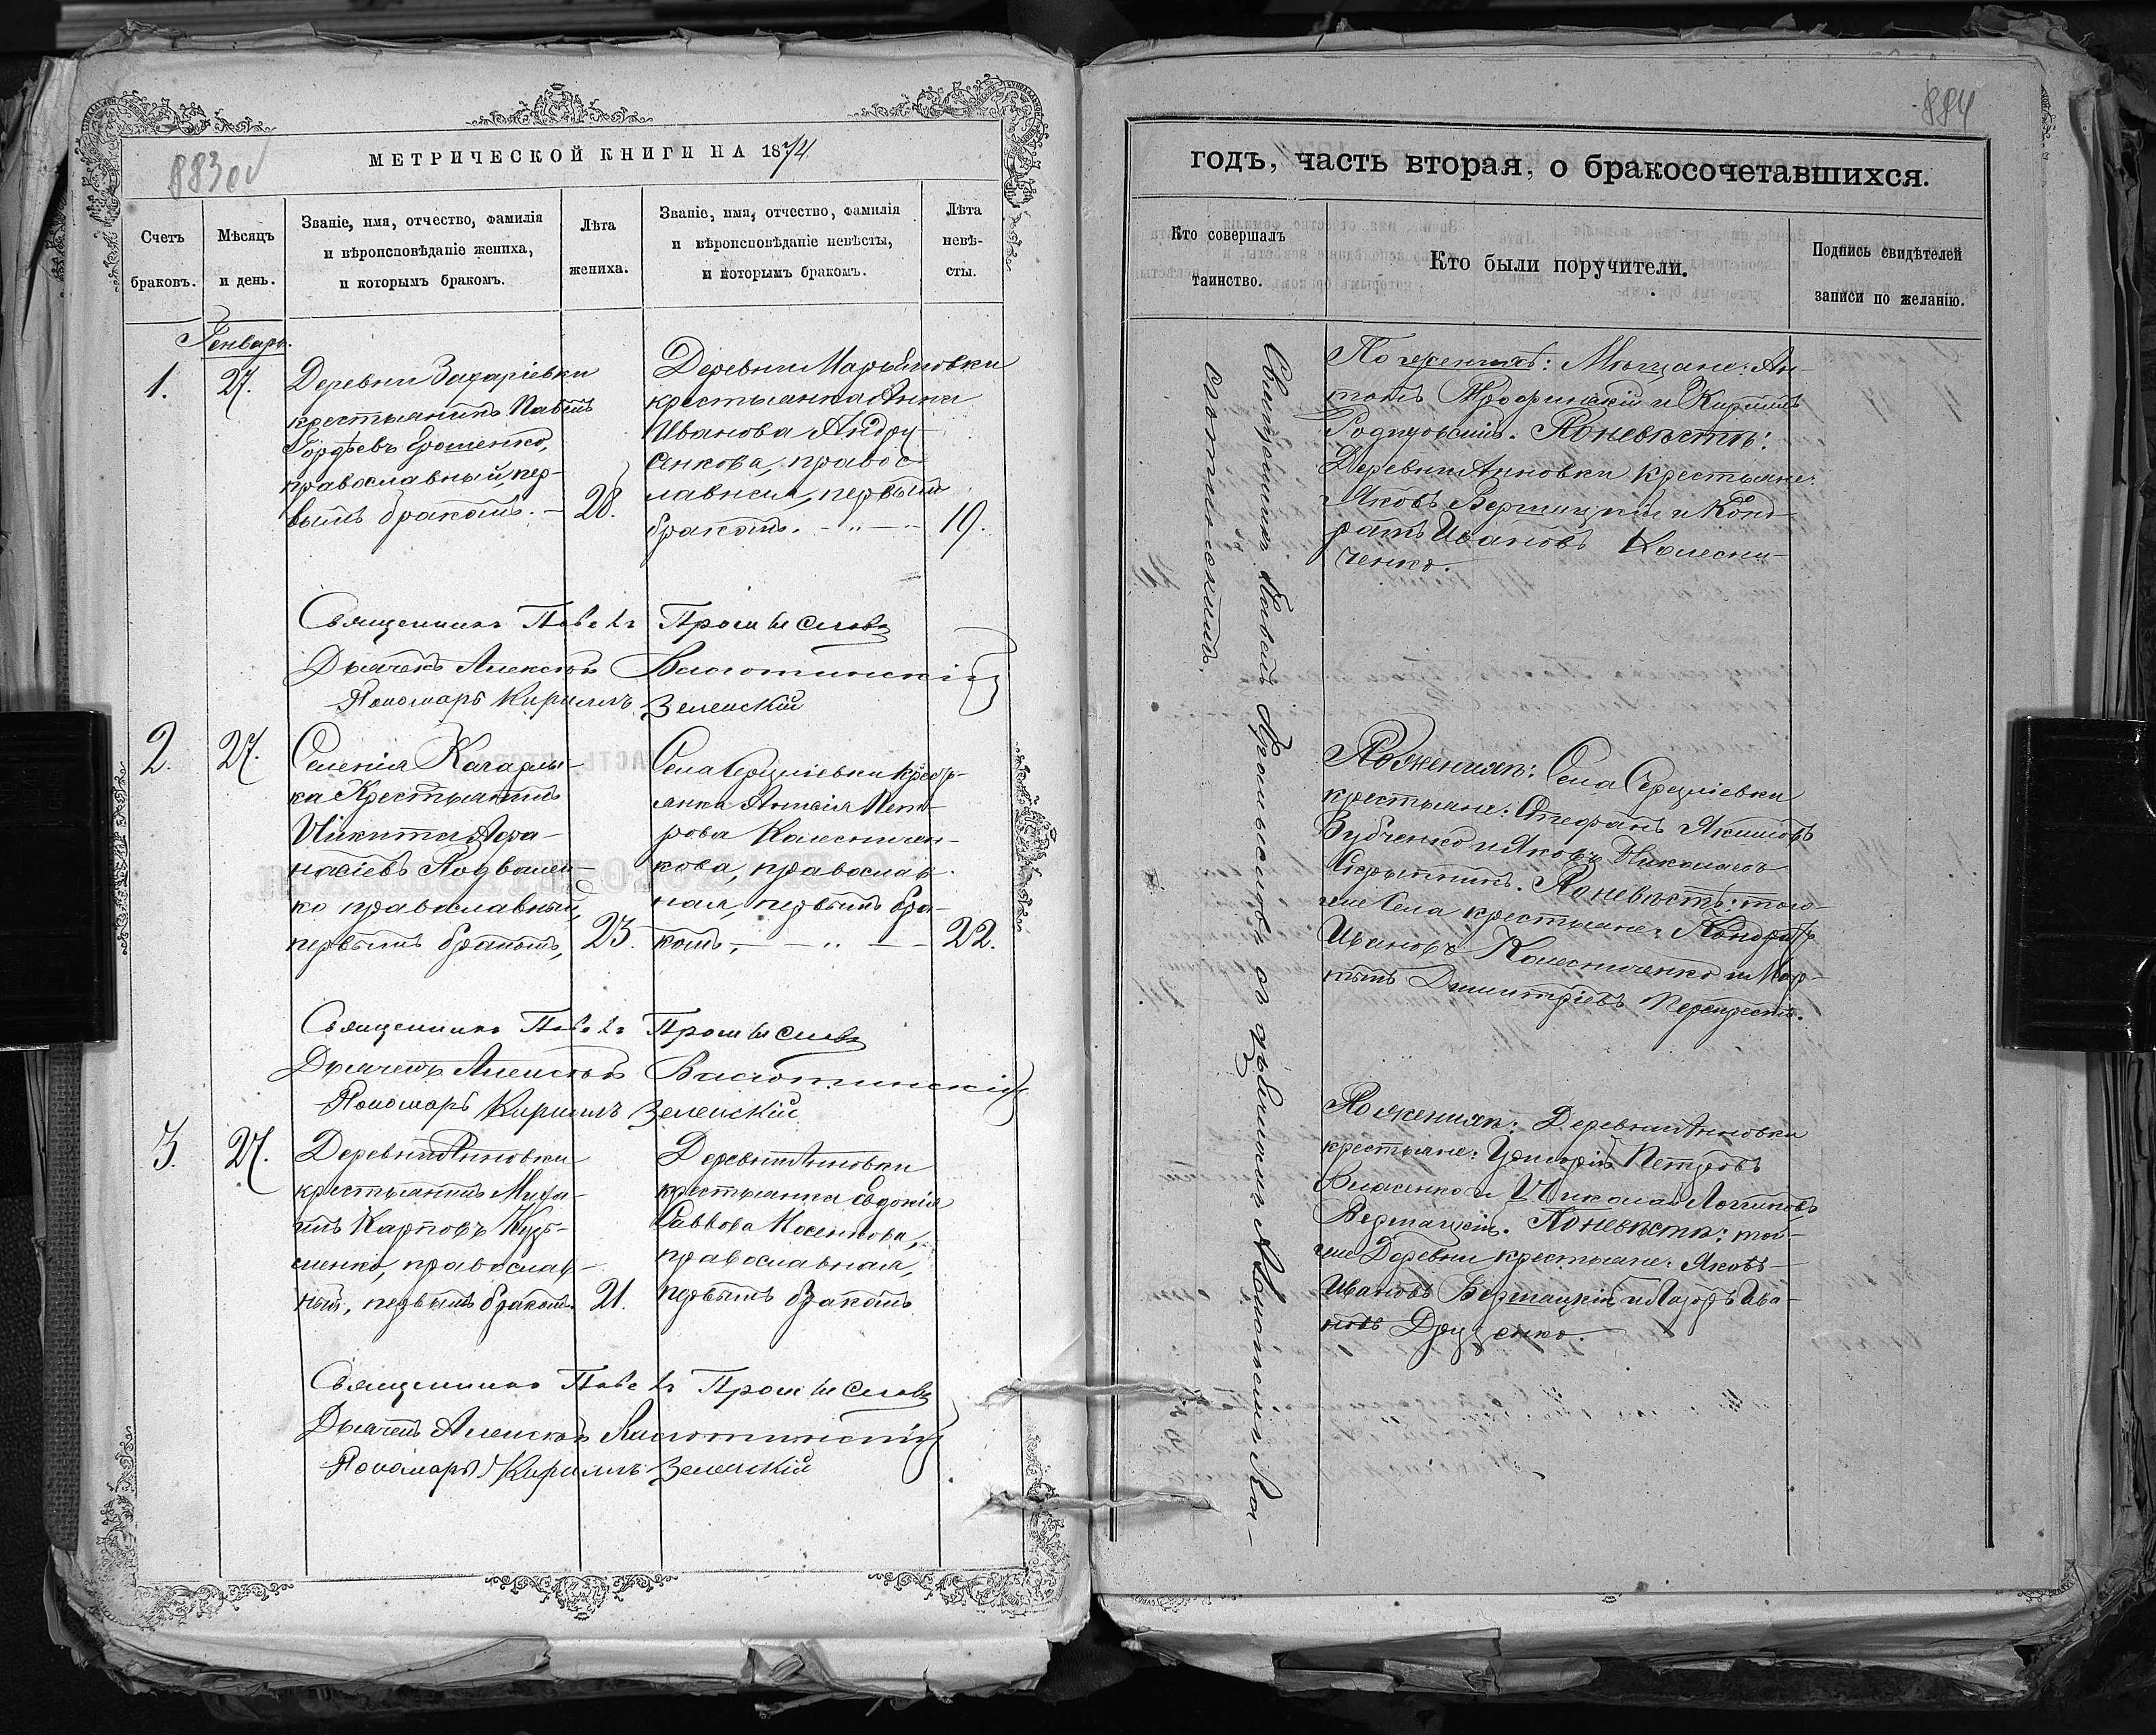 883об
МЕТРИЧЕСКОЙ КНИГИ НА 1874
Счетъ браковъ.
Мѣсяцъ и день.
Званіе, имя, отчество, фамилія
и вѣроисповѣданіе жениха,
и которымъ бракомъ.
Лѣта жениха.
Званіе, имя, отчество, фамилія
и вѣроисповѣданіе невѣсты,
и которымъ бракомъ.
Лѣта невѣ-
сты.
Генварь.
1.
27.
Деревни Захаріевки
крестьянинъ Павелъ
Гордѣевъ Ерошенко,
православный, пер-
вымъ бракомъ. –
28.
Деревни Марьяновки
крестьянка Анна
Иванова Андру-
сенкова, правос-
лавная, первымъ
бракомъ.
19.
Священникъ Павелъ Промысловъ
Дьячекъ Алексѣй
Пономарь Кириллъ Зеленскій
2.
27.
Селенія Кагарлы-
ка Крестьянинъ
Никита Афа-
насіевъ Подвален-
ко православный,
первымъ бракомъ,
23.
Села Сергіевки крестьянка
Петрова Колесничен-
кова, православ-
ная, первымъ бра-
комъ,
22.
Священникъ Павелъ Промысловъ
Дьячекъ Алексѣй
Пономарь Кириллъ Зеленскій
3.
27.
Деревни Анновки
крестьянинъ Миха-
илъ Карповъ Кузь-
менко, православ-
ный, первымъ бракомъ.
21.
Деревни Анновки
крестьянка Евдокія
Саввова Косенкова,
православная,
первымъ бракомъ
Священникъ Павелъ Промысловъ
Дьячекъ Алексѣй
Пономарь Кириллъ Зеленскій
884
годъ, часть вторая, о бракосочетавшихся.
Кто совершалъ
таинство.
Кто были поручители.
Подпись свидѣтелей
записи по желанію.
Священникъ Павелъ Промысловъ съ дьячкомъ Алексѣемъ
По женихѣ: Мѣщане: Ан-
тонъ и Кириллъ
По невѣстѣ:
Деревни Анновки крестьяне:
Яковъ Вершацкій и Конд-
ратъ Ивановъ Колесни-
ченко.
По женихѣ: Села Сергіевки
крестьяне: Стефанъ Якимовъ
Зубченко и Яковъ Николаевъ
По невѣстѣ: того-
же Села крестьяне: Кондратъ
Ивановъ Колесниченко и Мар-
тынъ Димитріевъ
По женихѣ: Деревни Анновки
крестьяне: Григорій Петровъ
Власенко и Николай Логиновъ
Вершацкій. По невѣстѣ: той-
же Деревни крестьяне: Яковъ
Ивановъ Вершацкій и Лазорь Ива-
новъ Доценко.